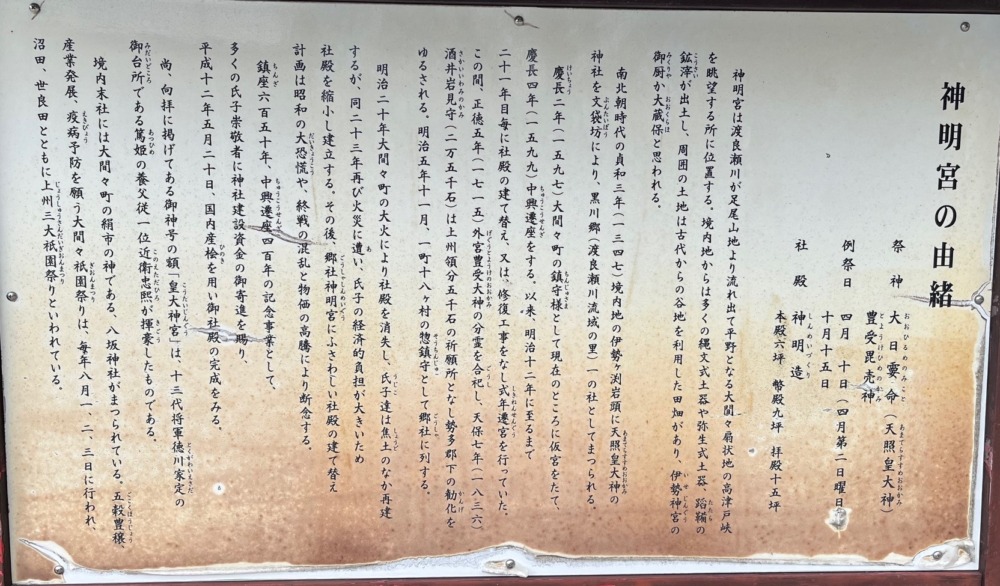 神明宮の由緒
祭神 大日孁命（天照皇大神）
豊受毘売神
例祭日 四月十日（四月第二日曜日）
十月十五日
社殿 神明造
本殿六坪 幣殿九坪 拝殿十五坪
神明宮は渡良瀬川が足尾山地より流れ出て平野となる大間々扇状地の高津戸峡
を眺望する所に位置する。境内地からは多くの縄文式土器や弥生式土器、蹈鞴の
鉱滓が出土し、周囲の土地は古代からの谷地を利用した田畑があり、伊勢神宮の
御厨か大蔵保と思われる。
南北朝時代の貞和三年（一三四七）境内地の伊勢ヶ渕岩頭に天照皇大神の
神社を文袋坊により、黒川郷（渡良瀬川流域の里）一の社としてまつられる。
慶長二年（一五九七）大間々町の鎮守様として現在のところに仮宮をたて、
慶長四年（一五九九）中興遷座をする。以来、明治十二年に至るまで
二十一年目毎に社殿の建て替え、又は、修復工事をなし式年遷宮を行っていた。
この間、正徳五年（一七一五）外宮豊受大神の分霊を合祀し、天保七年（一八三六）
酒井岩見守（二万五千石）は上州領分五千石の祈願所となし勢多郡下の勧化を
ゆるされる。明治五年十一月、一町十八ヶ村の惣鎮守として郷社に列する。
明治二十年大間々町の大火により社殿を消失し、氏子達は焦土のなか再建
するが、同二十三年再び火災に遭い、氏子の経済的負担が大きいため
社殿を縮小し建立する。その後、郷社神明宮にふさわしい社殿の建て替え
計画は昭和の大恐慌や、終戦の混乱と物価の高騰により断念する。
鎮座六百五十年、中興遷座四百年の記念事業として、
多くの氏子崇敬者に神社建設資金の御寄進を賜り、
平成十二年五月二十日、国内産桧を用い御社殿の完成をみる。
尚、向拝に掲げてある御神号の額「皇大神宮」は、十三代将軍徳川家定の
御台所である篤姫の養父従一位近衛忠熙が揮豪したものである。
境内末社には大間々町の絹市の神である、八坂神社がまつられている。五穀豊穣、
産業発展、疫病予防を願う大間々祇園祭りは、毎年八月一、二、三日に行われ、
沼田、世良田とともに上州三大祇園祭りといわれている。